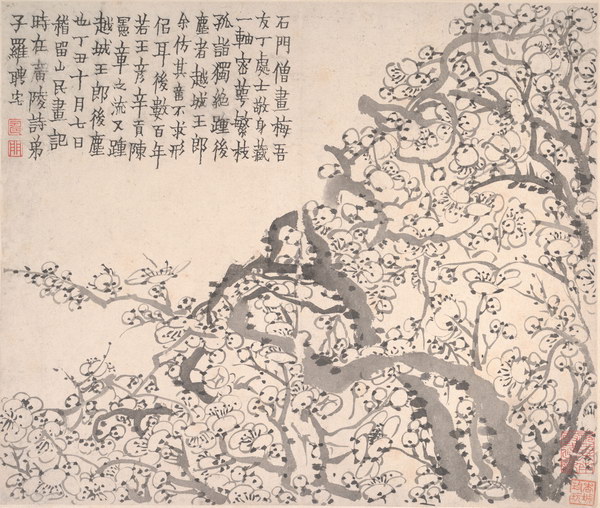 石門僧畫梅吾
友丁處士敬身藏
一軸密萼繁枝
孤詣獨絕踵後
塵者越城王郎
余仿其意不求形
侣耳後數百年
若王彥辛貢陳
章之流又踵
越城王郎後塵
也丁丑十月七日
稽留山民畫記
時在廣陵詩弟
子羅聘